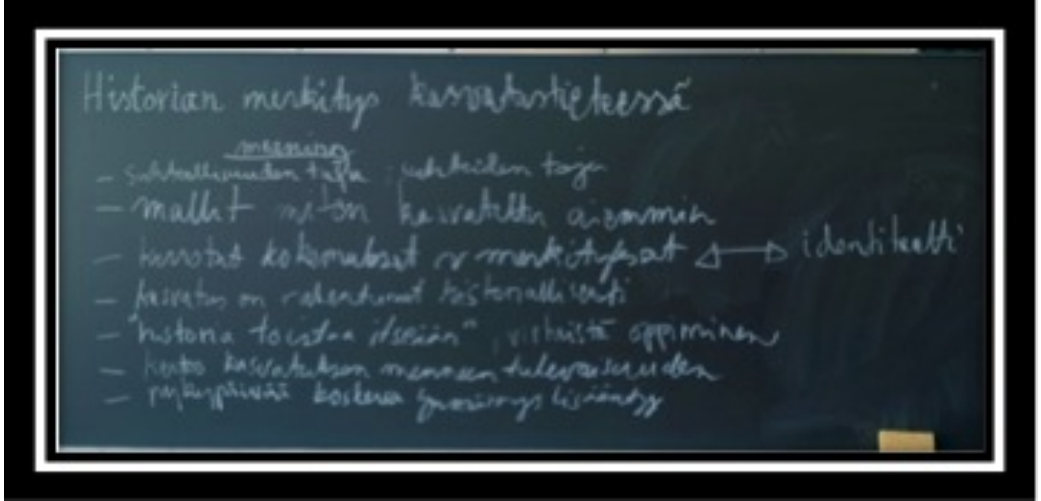 Historian merkitys kasvatustieteessä
meening
- suhteellisuuden taju
- mallit miten kasvatettu aiemmin
- kokemukset merkitykset identiteetti
- kasvatus on rakentunut historiallisesti
- "historia toistaa itseään", virheistä oppiminen
- kertoo kasvatuksen menneen tulevaisuuden
- nykypäivää koskeva ymmärrys lisääntyy